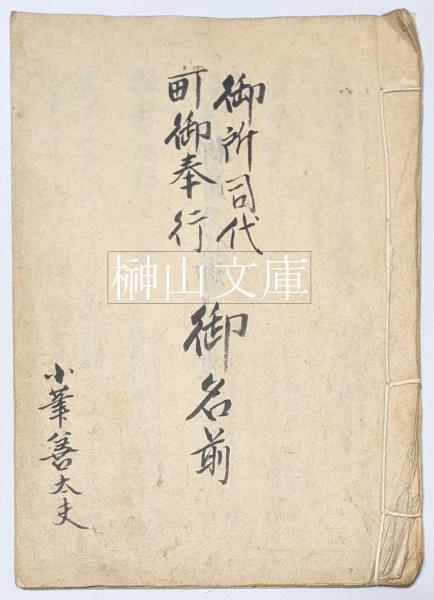 御所司代
町御奉行
御名前
小華善太夫
榊山文庫